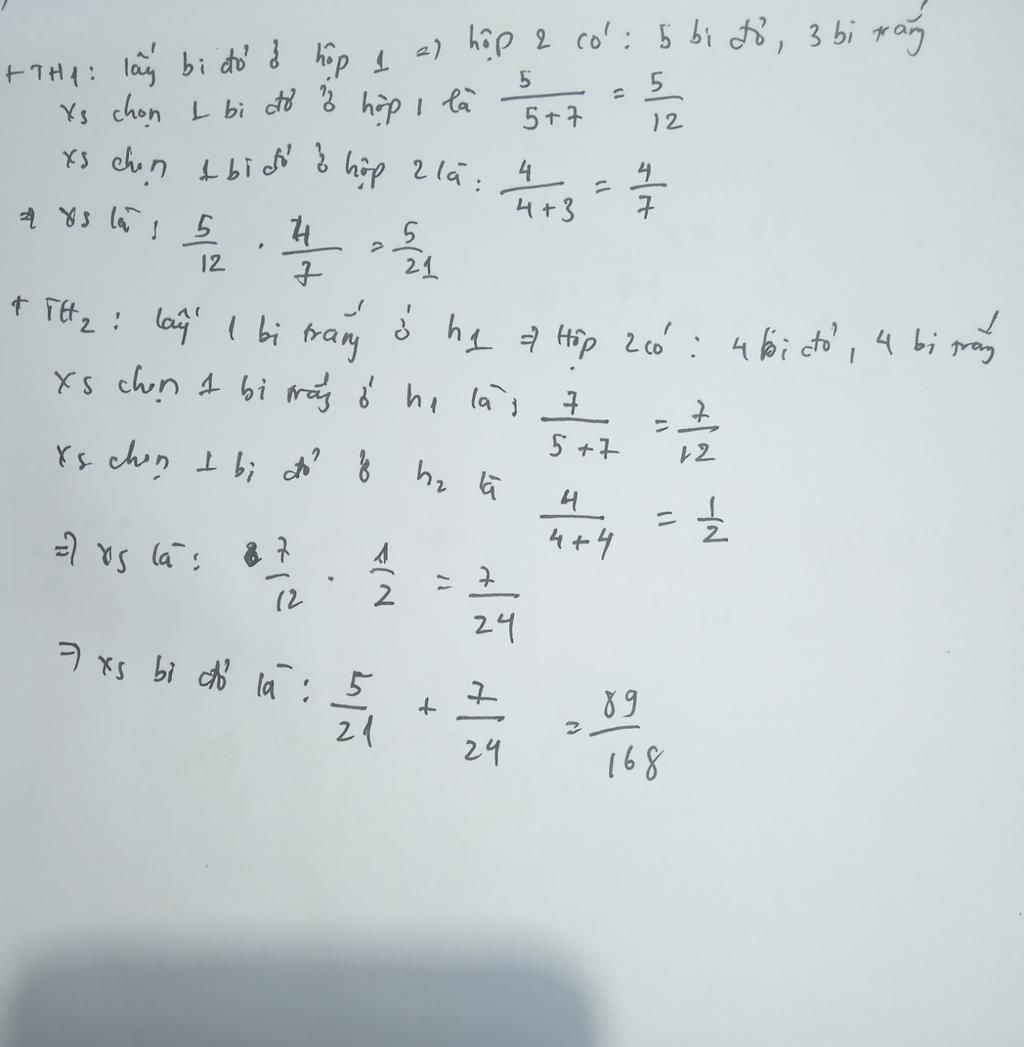 + TH1: lấy bi đỏ ở hộp 1 => hộp 2 có: 5 bi đỏ, 3 bi trắng
xs chọn 1 bi đỏ ở hộp 1 là 5/(5+7) = 5/12
xs chọn 1 bi đỏ ở hộp 2 là: 4/(4+3) = 4/7
=> xs là: 5/12 . 4/7 = 5/21
+ TH2: lấy 1 bi trắng ở h1 => Hộp 2 có: 4 bi đỏ, 4 bi trắng
xs chọn 1 bi trắng ở h1 là: 7/(5+7) = 7/12
xs chọn 1 bi đỏ ở h2 là 4/(4+4) = 1/2
=> xs là: 7/12 . 1/2 = 7/24
=> xs bi đỏ là: 5/21 + 7/24 = 89/168